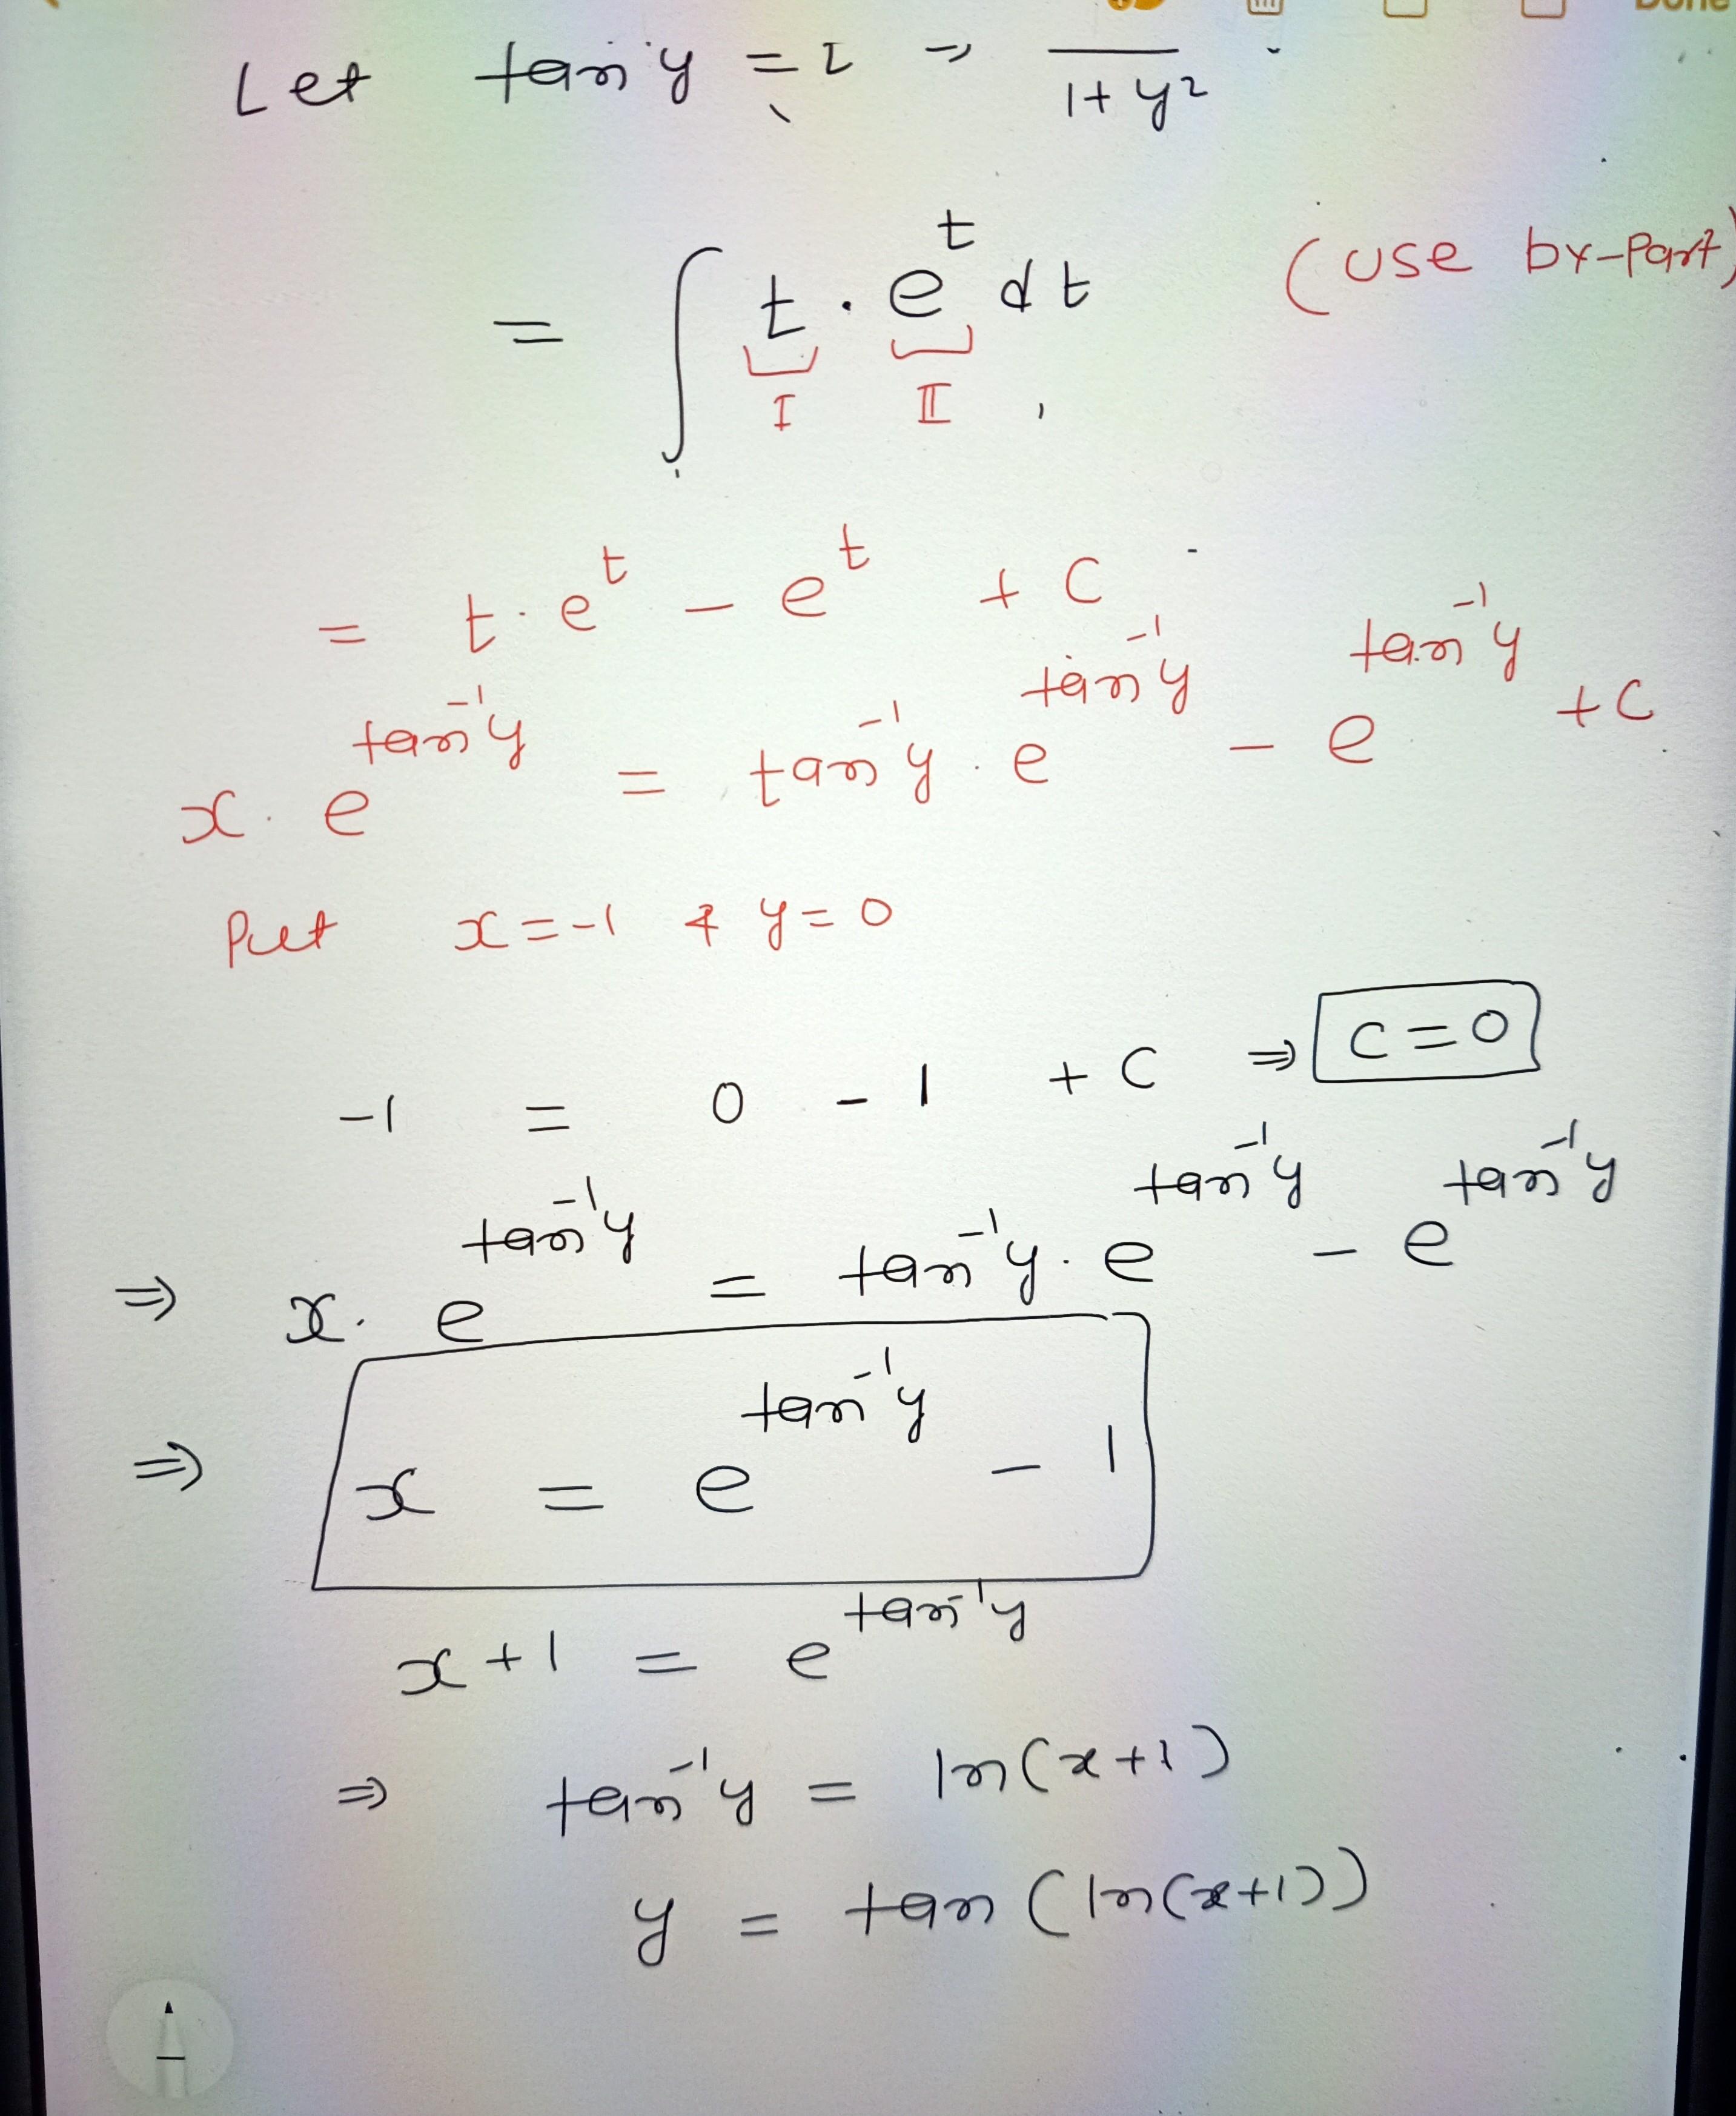 Done
Let tan⁻¹y = t ⇒ 1+y²
= ∫ t · eᵗ dt (use by-Part)
I II
= t · eᵗ − eᵗ + C
x · e^(tan⁻¹y) = tan⁻¹y · e^(tan⁻¹y) − e^(tan⁻¹y) + C
Put x = -1 & y = 0
-1 = 0 - 1 + C ⇒ C = 0
⇒ x · e^(tan⁻¹y) = tan⁻¹y · e^(tan⁻¹y) − e^(tan⁻¹y)
⇒ x = e^(tan⁻¹y) − 1
x + 1 = e^(tan⁻¹y)
⇒ tan⁻¹y = ln(x+1)
y = tan(ln(x+1))